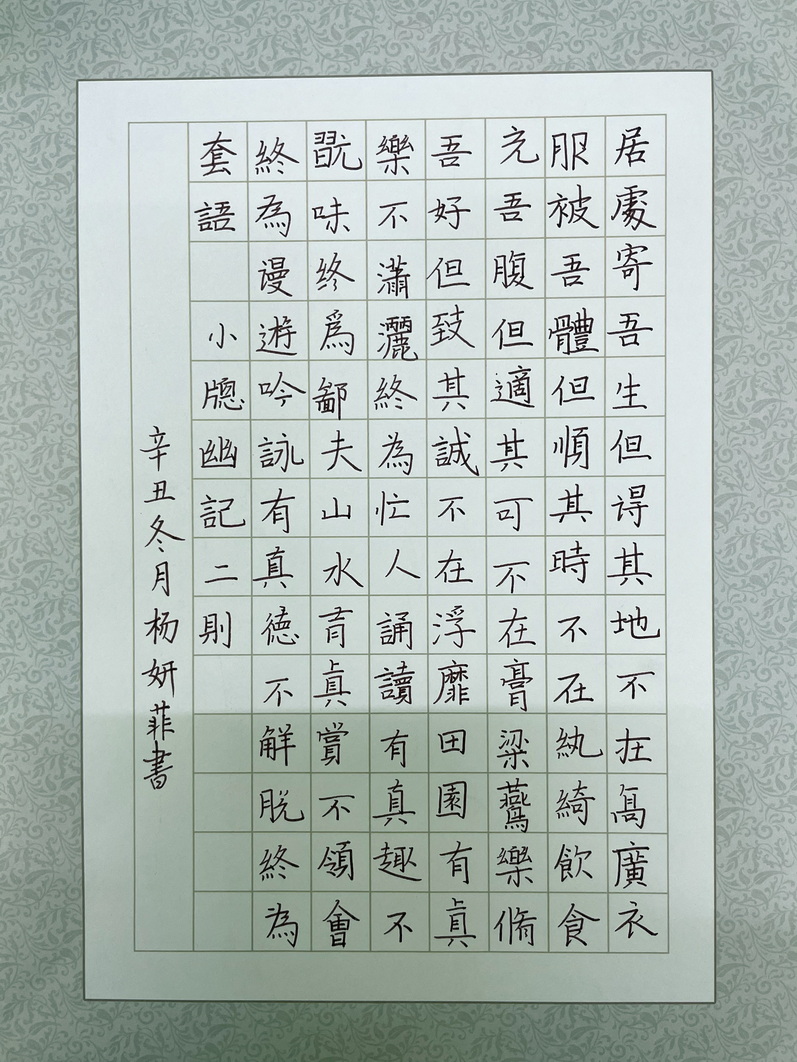 居處寄吾生但得其地不在高廣衣
服被吾體但順其時不在紈綺飲食
充吾腹但適其可不在膏粱鷰樂脩
吾好但致其誠不在浮靡田園有真
樂不瀟灑終為忙人誦讀有真趣不
翫味终爲鄙夫山水有真賞不領會
終為谩遊吟詠有真徳不解脱終為
套語 小牕幽記二則
辛丑冬月杨妍菲書